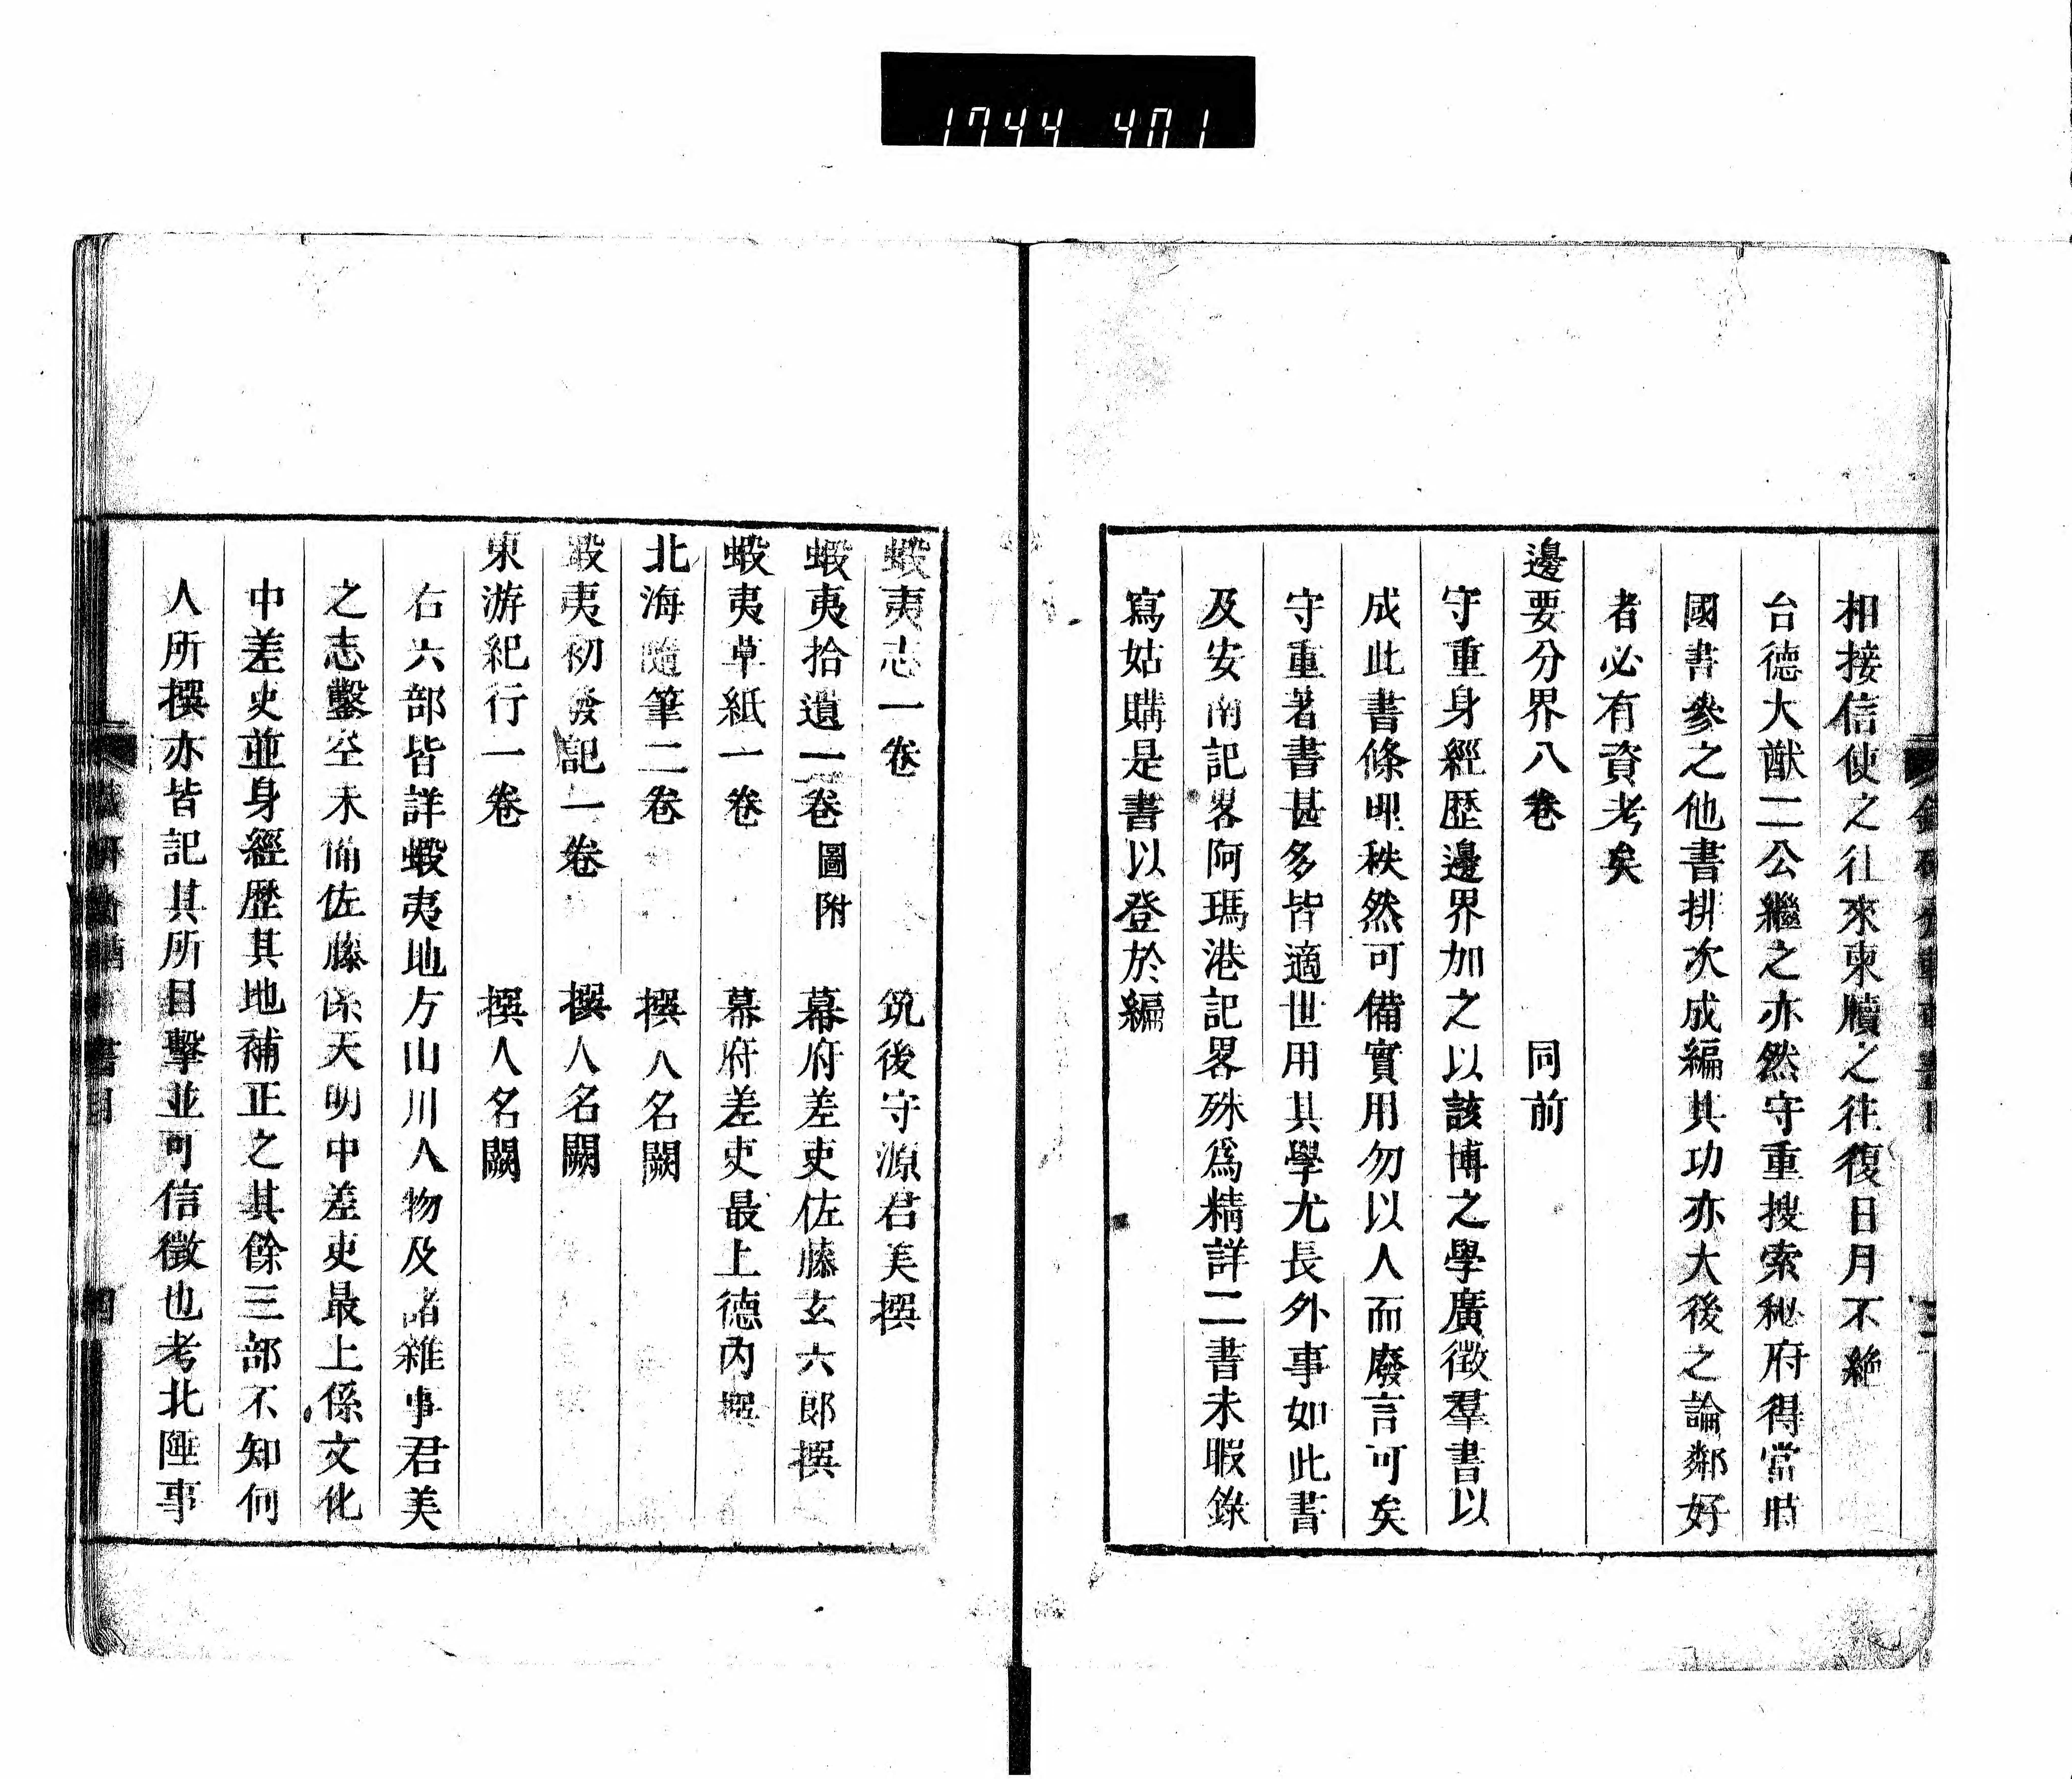 1744 401
相接信使之往來東牘之往復日月不絶
台德大猷二公繼之亦然守重搜索秘府得當時
國書參之他書排次成編其功亦大後之論鄰好
者必有資考矣
邊要分界八卷 同前
守重身經歷邊界加之以該博之學廣徵羣書以
成此書條理秩然可備實用勿以人而廢言可矣
守重著書甚多皆適世用其學尤長外事如此書
及安南記畧阿瑪港記畧殊爲精詳二書未暇錄
寫姑購是書以登於編
蝦夷志一卷 筑後守源君美撰
蝦夷拾遺一卷圖附 幕府差吏佐藤玄六郞撰
蝦夷草紙一卷 幕府差吏最上德內撰
北海隨筆二卷 撰人名闕
蝦夷初發記一卷 撰人名闕
東游紀行一卷 撰人名闕
右六部皆詳蝦夷地方山川人物及諸雜事君美
之志鑿空未備佐藤係天明中差吏最上係文化
中差吏並身經歷其地補正之其餘三部不知何
人所撰亦皆記其所目擊並可信徵也考北陲事
書目
四